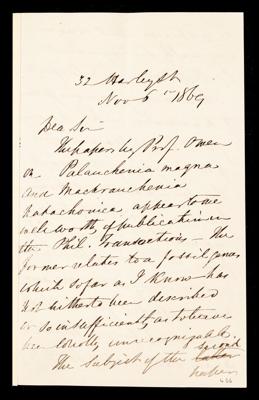 32 Harley St
Nov 6th 1869
Dear Sir
The papers by Prof. Owen
on Palauchenia magna
and Macrauchenia
patachonica appear to me
well worthy of publication in
the Phil. Transactions – The
former relates to a fossil genus
which so far as I know has
not hitherto been described
or so insufficiently as to have
been totally unrecognizable.
The subject of the latter second